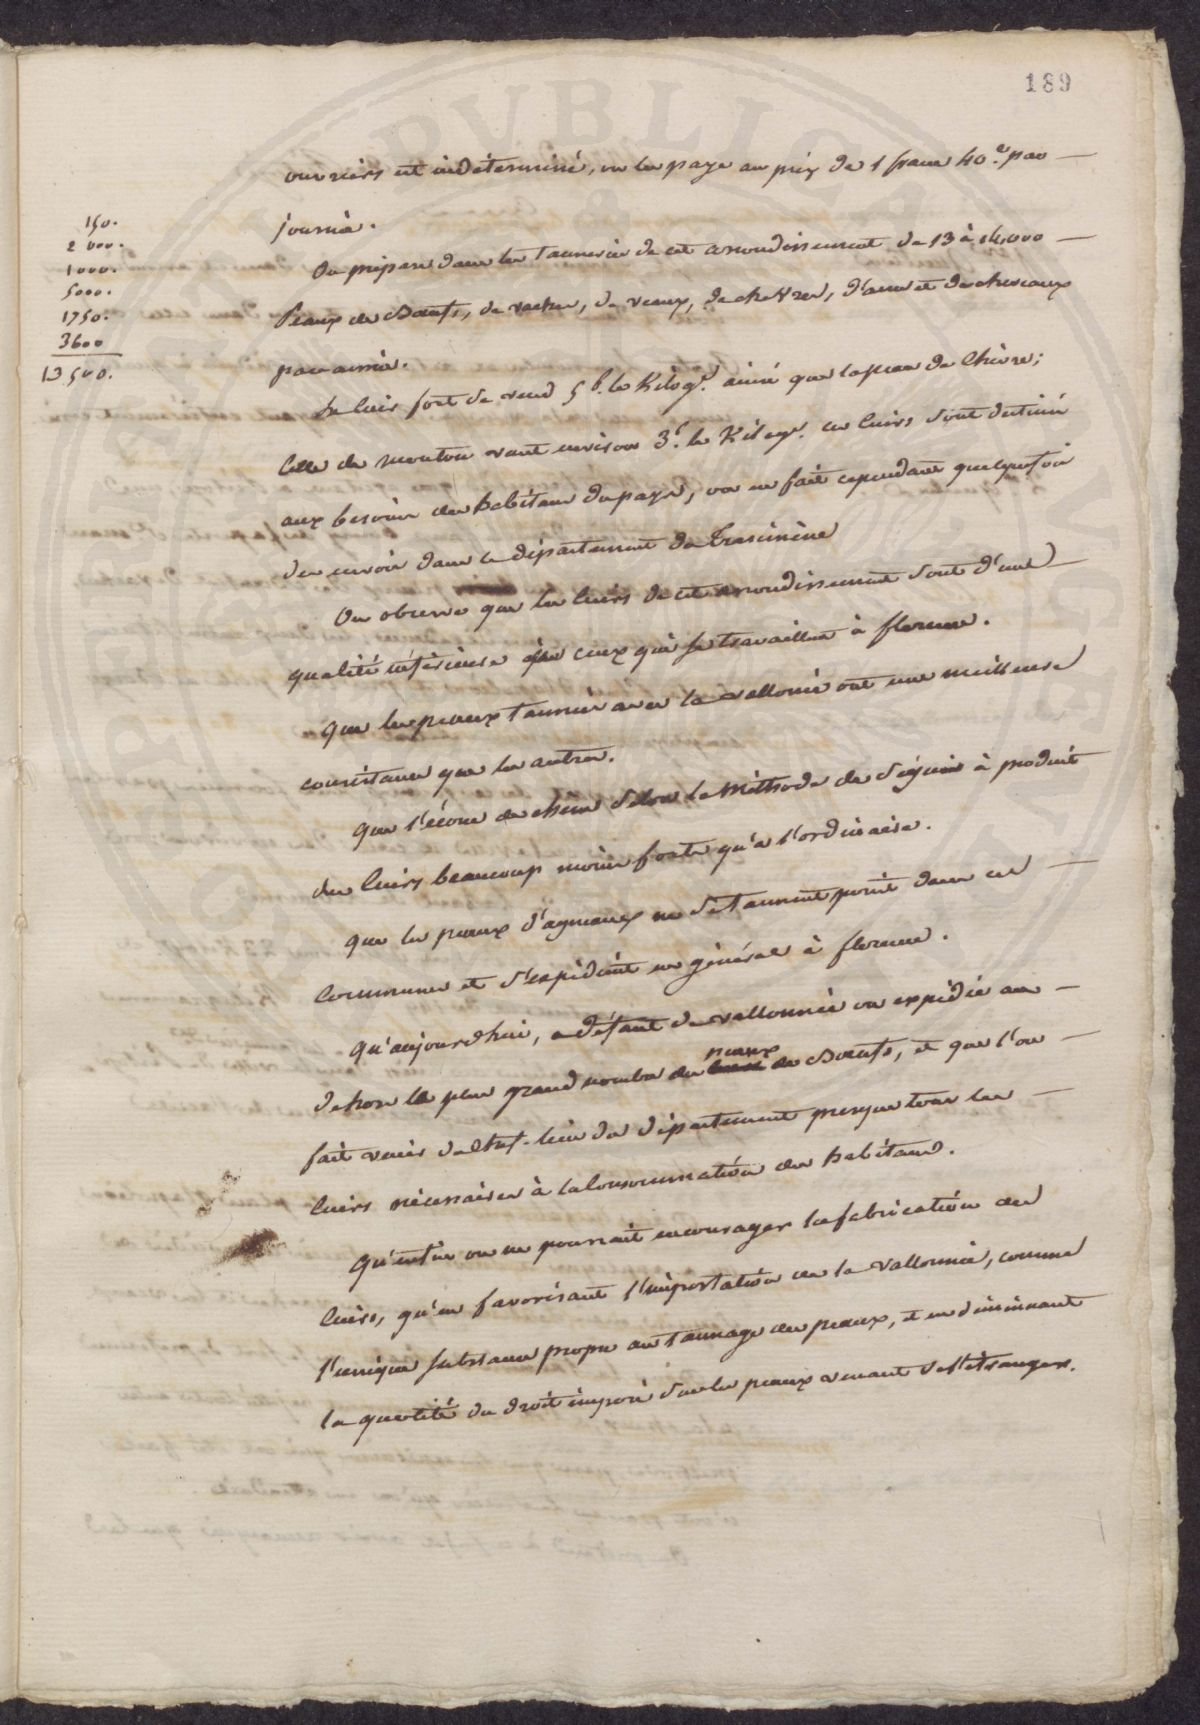 189
ouvriers est indéterminé, on les paye au prix de 1 franc 40.c par
journée.
150.
2000.
1000.
5000.
1750.
3600
13500.
On prépare dans les Tanneries de cet arrondissement de 13 à 14,000
Peaux de Bœufs, de vaches, de veaux, de chèvres, d'anes et de chevaux
par année.
Le Cuir fort se vend 5 f. le Kilog. ainsi que la peau de Chèvre;
Celle de mouton vaut environ 3 f. le Kilog. ces Cuirs sont destinés
aux besoins des habitans du pays, on en fait cependant quelquefois
des envois dans le département du Trasimène
On observe que les Cuirs de cet arrondissement sont d'une
qualité inférieure à ceux qui se travaillent à florence.
Que les peaux tannées avec la vallonée ont une meilleure
consistance que les autres.
Que l'écorce de chêne selon la Méthode de Séguin à produit
des Cuirs beaucoup moins forts qu'à l'ordinaire.
que les peaux d'agneaux ne se tannent point dans ces
Communes et s'expédient en général à florence.
Qu'aujourd'hui, a défaut de vallonnée on expédie au
dehors le plus grand nombre des peaux de Bœufs, et que l'on
fait venir du Chef-lieu du département presque tous les
Cuirs nécessaires à la Consommation des habitans.
Qu'enfin on ne pourrait encourager la fabrication des
Cuirs, qu'en favorisant l'importation de la vallonnée, comme
l'unique substance propre au tannage des peaux, et en diminuant
la quotité du droit imposé sur les peaux venant de l'étranger.